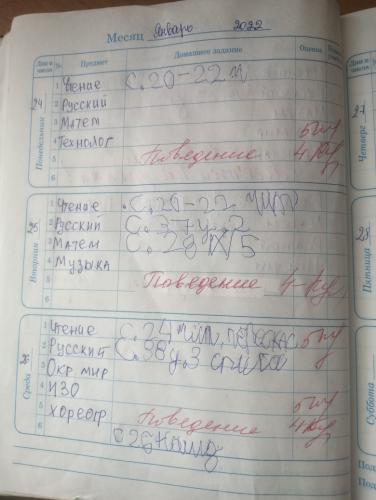 Месяц Январь 2022
Дни и числа № Предмет Домашнее задание Оценка
Понедельник 24
1 Чтение с. 20-22 ч
2 Русский
3 Матем
4 Технолог 5
5 Поведение 4
6
Вторник 25
1 Чтение с. 20-22 чит
2 Русский с. 37 у. 2
3 Матем с. 28 № 5
4 Музыка
5 Поведение 4-
6
Среда
1 Чтение с. 24 чит, пересказ 5
2 Русский с. 38 у. 3
3 Окр. мир
4 ИЗО 5
5 Хореогр Поведение 4
6 с 26
Дни и числа
Четверг 27
Пятница 28
Суббота